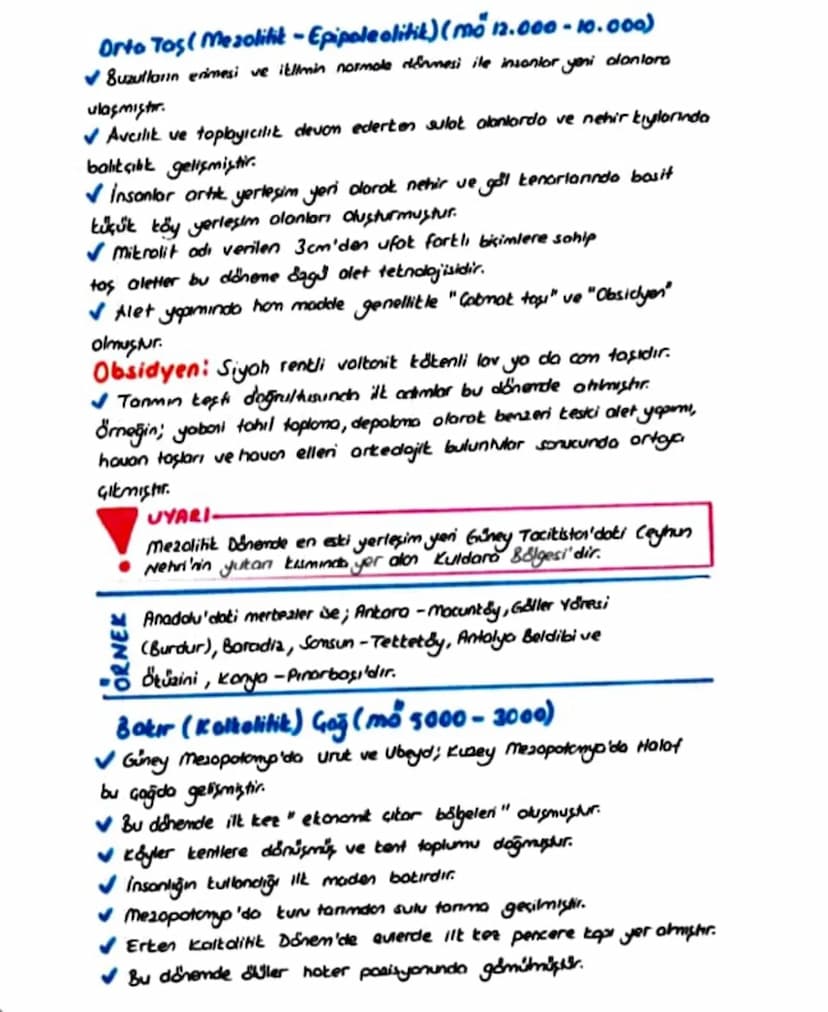 Orta Taş (Mezolitik - Epipaleolitik) (MÖ 12.000 - 10.000)
✓ Buzulların erimesi ve iklimin normale dönmesi ile insanlar yeni alanlara
ulaşmıştır.
✓ Avcılık ve toplayıcılık devam ederken sulak alanlarda ve nehir kıyılarında
balıkçılık gelişmiştir.
✓ İnsanlar artık yerleşim yeri olarak nehir ve göl kenarlarında basit
küçük köy yerleşim alanları oluşturmuştur.
✓ Mikrolit adı verilen 3cm'den ufak farklı biçimlere sahip
taş aletler bu döneme özgü alet teknolojisidir.
✓ Alet yapımında ham madde genellikle "Çakmak taşı" ve "Obsidyen"
olmuştur.
Obsidyen: Siyah renkli volkanik kökenli lav ya da cam taşıdır.
✓ Tarımın keşfi doğrultusunda ilk adımlar bu dönemde atılmıştır.
Örneğin; yabani tahıl toplama, depolama olarak benzeri keski alet yapımı,
havan taşları ve havan elleri arkeolojik buluntular sonucunda ortaya
çıkmıştır.
UYARI
Mezolitik Dönemde en eski yerleşim yeri Güney Tacikistan'daki Ceyhun
Nehri'nin yukarı kısmında yer alan Kuldara Bölgesi'dir.
ÖRNEK
Anadolu'daki merkezler ise; Ankara - Macunköy, Göller Yöresi
(Burdur), Baradiz, Samsun - Tekkeköy, Antalya Beldibi ve
Öküzini, Konya - Pınarbaşı'dır.
Bakır (Kalkolitik) Çağ (MÖ 5000 - 3000)
✓ Güney Mezopotamya'da Uruk ve Ubeyd; Kuzey Mezopotamya'da Halaf
bu çağda gelişmiştir.
✓ Bu dönemde ilk kez "ekonomik çıkar bölgeleri" oluşmuştur.
✓ Köyler kentlere dönüşmüş ve kent toplumu doğmuştur.
✓ İnsanlığın kullandığı ilk maden bakırdır.
✓ Mezopotamya'da kuru tarımdan sulu tarıma geçilmiştir.
✓ Erken Kalkolitik Dönem'de evlerde ilk kez pencere kapı yer almıştır.
✓ Bu dönemde ölüler hoker pozisyonunda gömülmüştür.